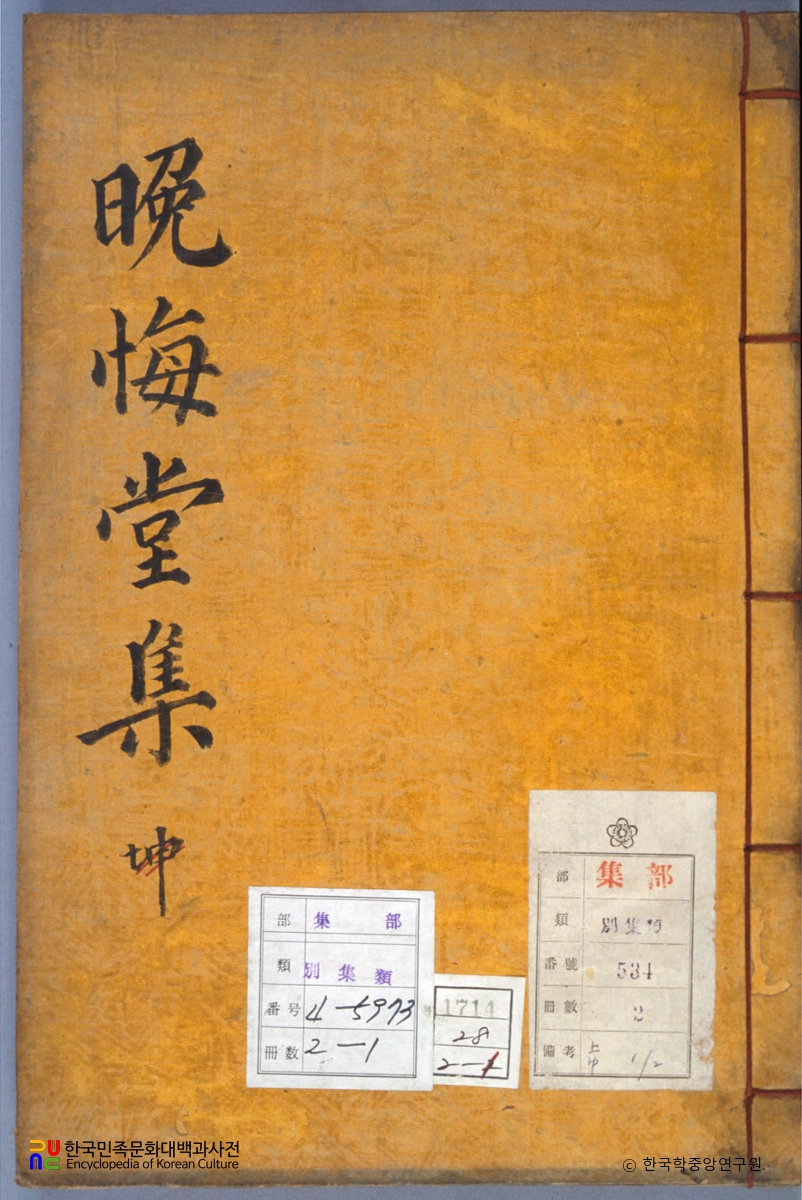 晩悔堂集 坤
部 集部
類 別集類
番号 4-5973
冊数 2-1
1714
28
2-1
部 集部
類 別集類
番號 534
冊數 2
備考 1/2
한국민족문화대백과사전
Encyclopedia of Korean Culture
© 한국학중앙연구원